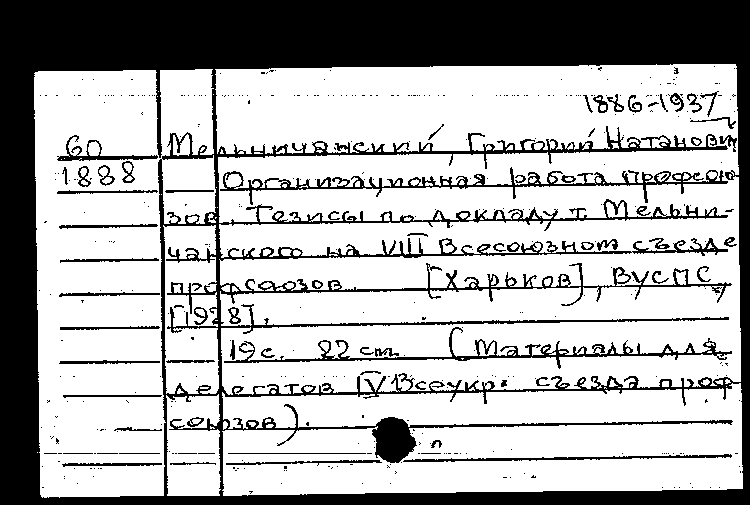 1886-1937
6п Мельничанский, Григорий Натанович
1888 Организационная работа профсою-
зов. Тезисы по докладу т. Мельни-
чанского на VIII Всесоюзном съезде
профсоюзов. [Харьков], ВУСПС,
[1928].
19 с. 22 см. (Материалы для
делегатов IV Всеукр. съезда проф-
союзов).
п